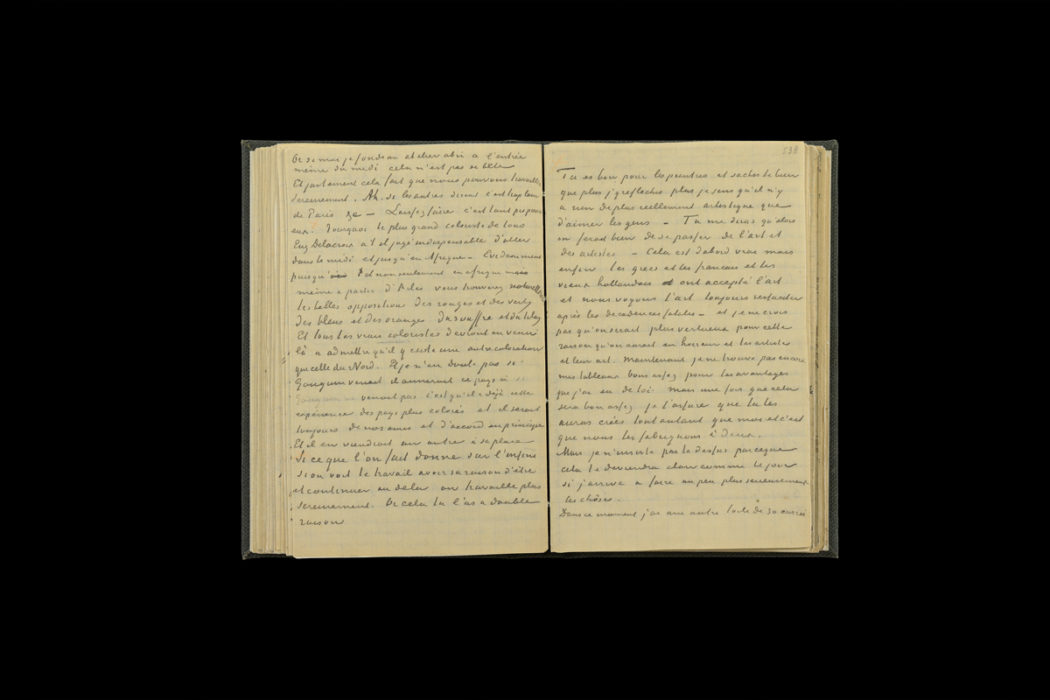 Or si moi je fonde un atelier abri à l'entrée
même du midi cela n'est pas si bête
Et justement cela fait que nous pouvons travailler
sereinement. Ah si les autres disent c'est trop loin
de Paris &c – Laissez faire c'est tant pis pour
eux. Pourquoi le plus grand coloriste de tous
Eug Delacroix a t il jugé indispensable d'aller
dans le midi et jusqu'en Afrique – Evidemment
puisqu'... et non seulement en afrique mais
même à partir d'Arles vous trouverez naturellement
les belles oppositions des rouges et des verts
des bleus et des oranges du souffre et du lilas
Et tous les vrais coloristes devront en venir
là à admettre qu'il existe une autre coloration
que celle du Nord. Et je n'en doute pas si
Gauguin venait il aimerait ce pays ci si
Gauguin ne venait pas c'est qu'il a déjà cette
expérience des pays plus colorés et il serait
toujours de nos amis et d'accord en principe
Et il en viendrait un autre à sa place
Si ce que l'on fait donne sur l'infini
si on voit le travail avoir sa raison d'être
et continuer au delà on travaille plus
sereinement. Or cela tu l'as à double
raison
538
Tu es bon pour les peintres et sache le bien
que plus j'y réfléchis plus je sens qu'il n'y
a rien de plus réellement artistique que
d'aimer les gens – Tu me diras qu'alors
on ferait bien de se passer de l'art et
des artistes – Cela est d'abord vrai mais
enfin les grecs et les francais et les
vieux hollandais ont accepté l'art
et nous voyons l'art toujours ressusciter
après les décadences fatales – et je ne crois
pas qu'on serait plus vertueux pour cette
raison qu'on aurait en horreur et les artistes
et leur art. Maintenant je ne trouve pas encore
mes tableaux bons assez pour les avantages
que j'ai eu de toi. Mais une fois que cela
sera bon assez je t'assure que tu les
auras créés tout autant que moi et c'est
que nous les fabriquons à deux.
Mais je n'insiste pas là dessus parceque
cela te deviendra clair comme le jour
si j'arrive à faire un peu plus serieusement
les choses.
Dans ce moment j'ai une autre toile de 30 carrée